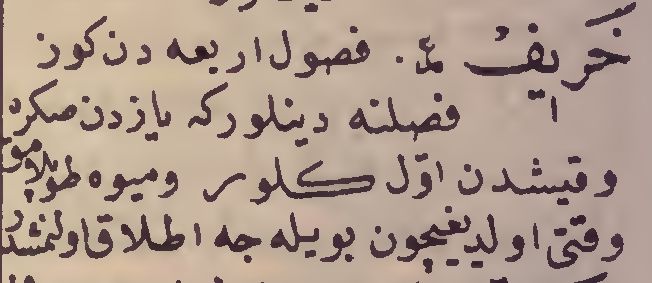 خَرِیفْ ع. فصول اربعه دن كوز
فصلنه دینلور كه یازدن صكره
وقیشدن اوّل كلور ومیوه طوپلامق
وقتی اولدیغیچون بویله جه اطلاق اولنمشدر